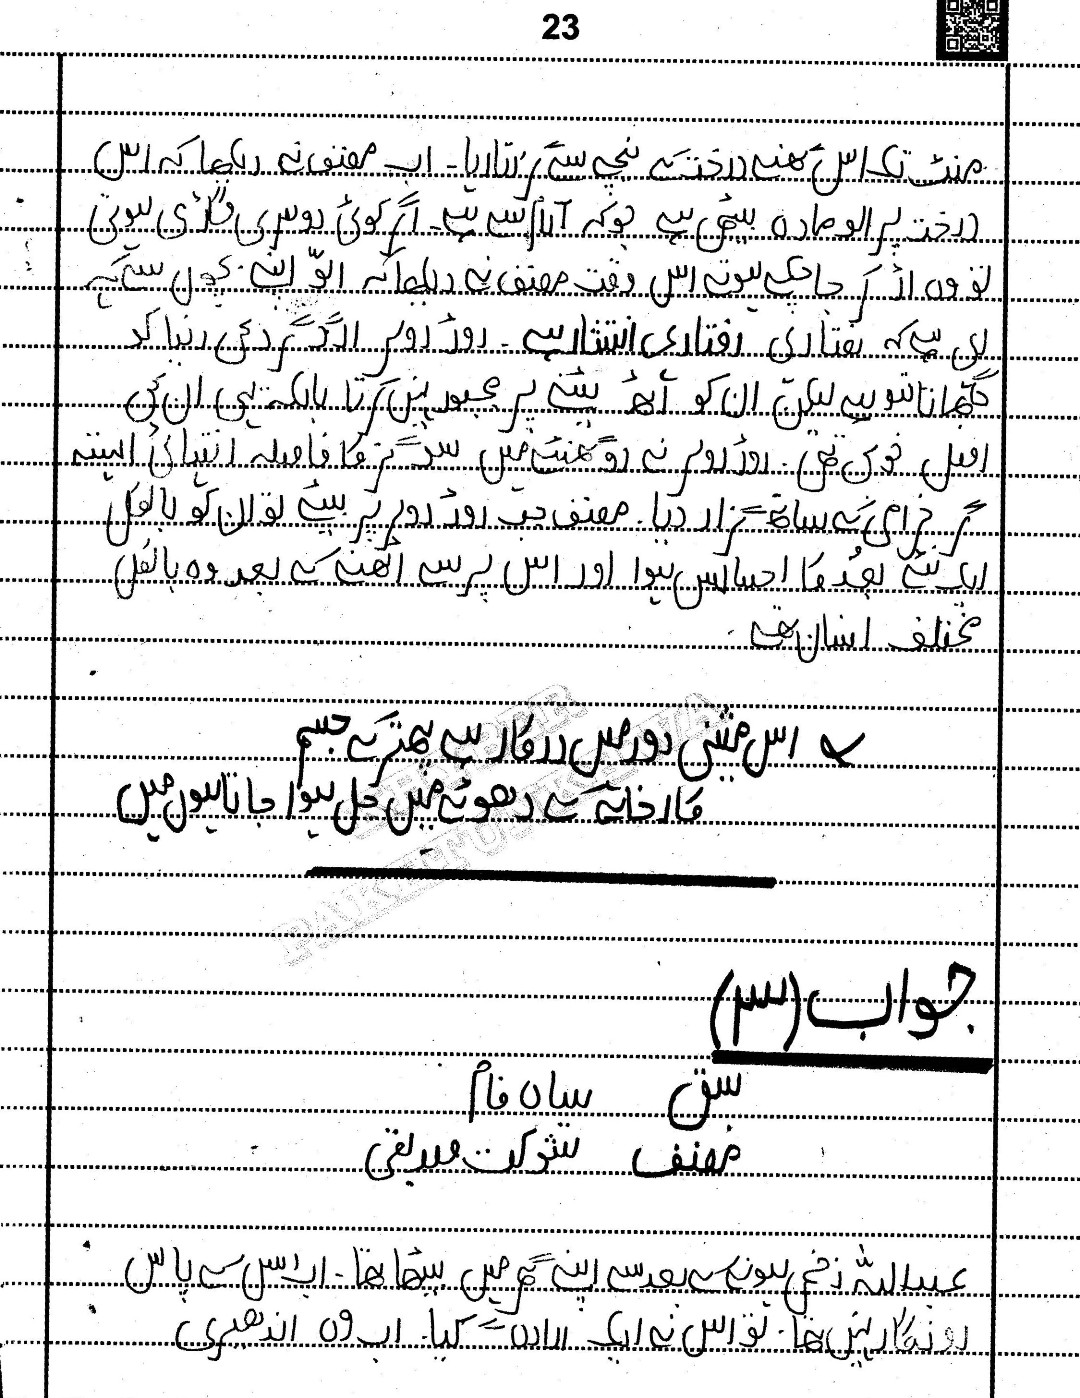 23
منٹ تک اس گھنے درخت کے نیچے سے گزرتا رہا۔ اب مصنف نے دیکھا کہ اس
درخت پر الو مادہ بیٹھی ہے جو کہ آرام سے ہے۔ اگر کوئی دوسری گاڑی ہوتی
تو وہ اڑ کر جا چکے ہوتے اس وقت مصنف نے دیکھا کہ الو اپنے بچوں سے کہہ
رہی ہے کہ رفتاری انتشار ہے۔ روڈ رولر ارد گرد کی دنیا کو
تو ہے لیکن ان کو اٹھ بیٹھنے پر مجبور نہیں کرتا بلکہ یہی ان کی
اصل خوبی تھی۔ روڈ رولر نے دو گھنٹے میں سو گز کا فاصلہ انتہائی آہستہ
خرامی کے ساتھ گزار دیا۔ مصنف جب روڈ رولر پر بیٹھے تو ان کو بالکل
ایک نئے بُعد کا احساس ہوا اور اس پر سے اٹھنے کے بعد وہ بالکل
مختلف انسان تھے۔
اس مشینی دور میں درکار ہے پتھر کے جسم
کارخانے کے دھوئے میں حل ہوا جاتا ہوں میں
جواب (۳)
سبق سیاہ فام
مصنف شوکت صدیقی
عبداللہ زخمی ہونے کے بعد سے اپنے گھر میں بیٹھا تھا۔ اب اس کے پاس
روزگار نہیں تھا۔ تو اس نے ایک ارادہ کیا۔ اب وہ اندھیری